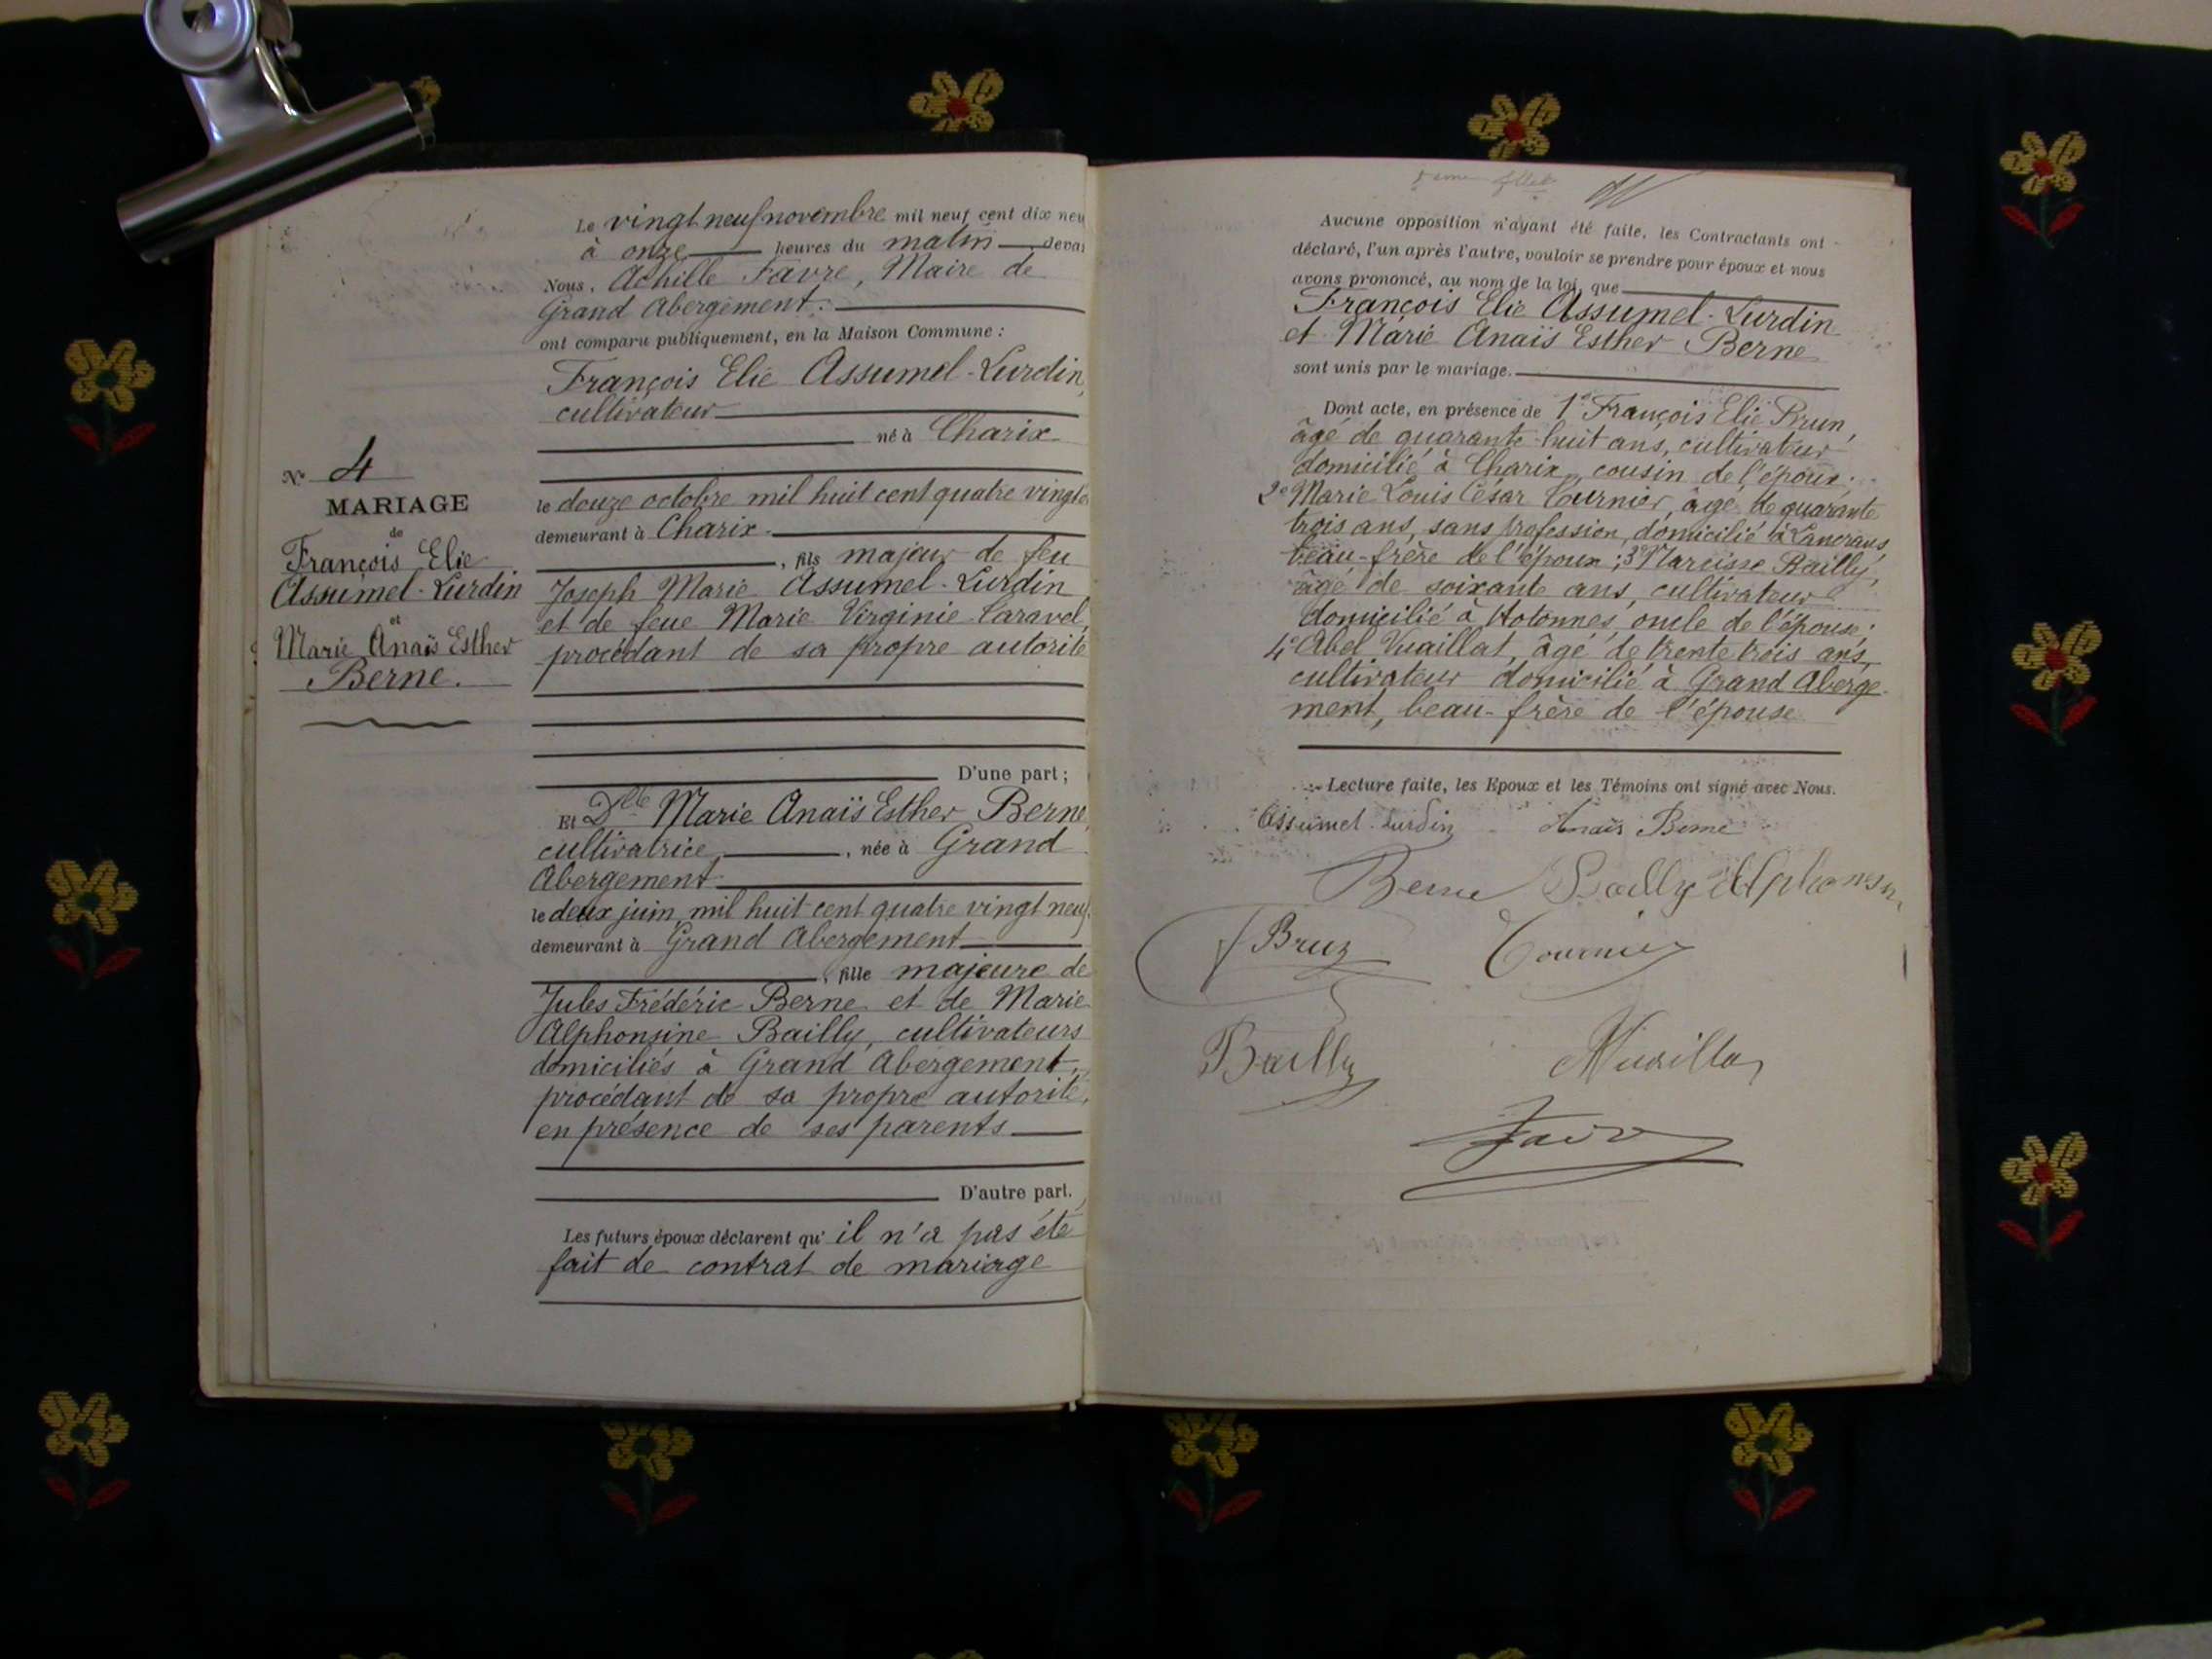 Le vingt neuf novembre mil neuf cent dix neu
à onze heures du matin devan
Nous, Achille Favre, Maire de
Grand Abergement.
ont comparu publiquement, en la Maison Commune :
François Elie Assumel-Lurdin,
cultivateur
né à Charix
le douze octobre mil huit cent quatre vingt
demeurant à Charix
, fils majeur de feu
Joseph Marie Assumel-Lurdin
et de feue Marie Virginie Caravel,
procédant de sa propre autorité
D'une part ;
Et Dlle Marie Anaïs Esther Berne,
cultivatrice, née à Grand
Abergement
le deux juin mil huit cent quatre vingt neuf,
demeurant à Grand Abergement
, fille majeure de
Jules Frédéric Berne et de Marie
Alphonsine Bailly, cultivateurs
domiciliés à Grand Abergement,
procédant de sa propre autorité,
en présence de ses parents
D'autre part.
Les futurs époux déclarent qu' il n'a pas été
fait de contrat de mariage
N° 4
MARIAGE
de
François Elie
Assumel-Lurdin
et
Marie Anaïs Esther
Berne.
Aucune opposition n'ayant été faite, les Contractants ont
déclaré, l'un après l'autre, vouloir se prendre pour époux et nous
avons prononcé, au nom de la loi, que
François Elie Assumel-Lurdin
et Marie Anaïs Esther Berne
sont unis par le mariage.
Dont acte, en présence de 1° François Elie Brun,
âgé de quarante-huit ans, cultivateur
domicilié à Charix, cousin de l'époux;
2° Marie Louis César Tournier, âgé de quarante
trois ans, sans profession, domicilié à Lancrans,
beau-frère de l'époux; 3° Narcisse Bailly,
âgé de soixante ans, cultivateur
domicilié à Hotonnes, oncle de l'épouse;
4° Abel Vuaillat, âgé de trente trois ans,
cultivateur domicilié à Grand Aberge-
ment, beau-frère de l'épouse
Lecture faite, les Epoux et les Témoins ont signé avec Nous.
Assumel-Lurdin Anaïs Berne
Berne Bailly Alphonsin
Tournier
Bailly
Favre